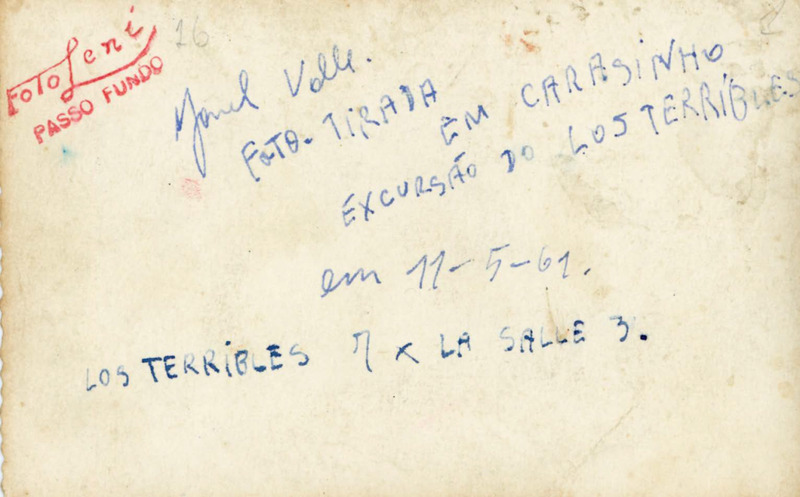 Foto Leni
PASSO FUNDO
16
Valle.
FOTO-TIRADA
EM CARASINHO
EXCURSÃO DO LOS TERRÍBLES
em 11-5-61.
LOS TERRÍBLES 7 X LA SALLE 3.